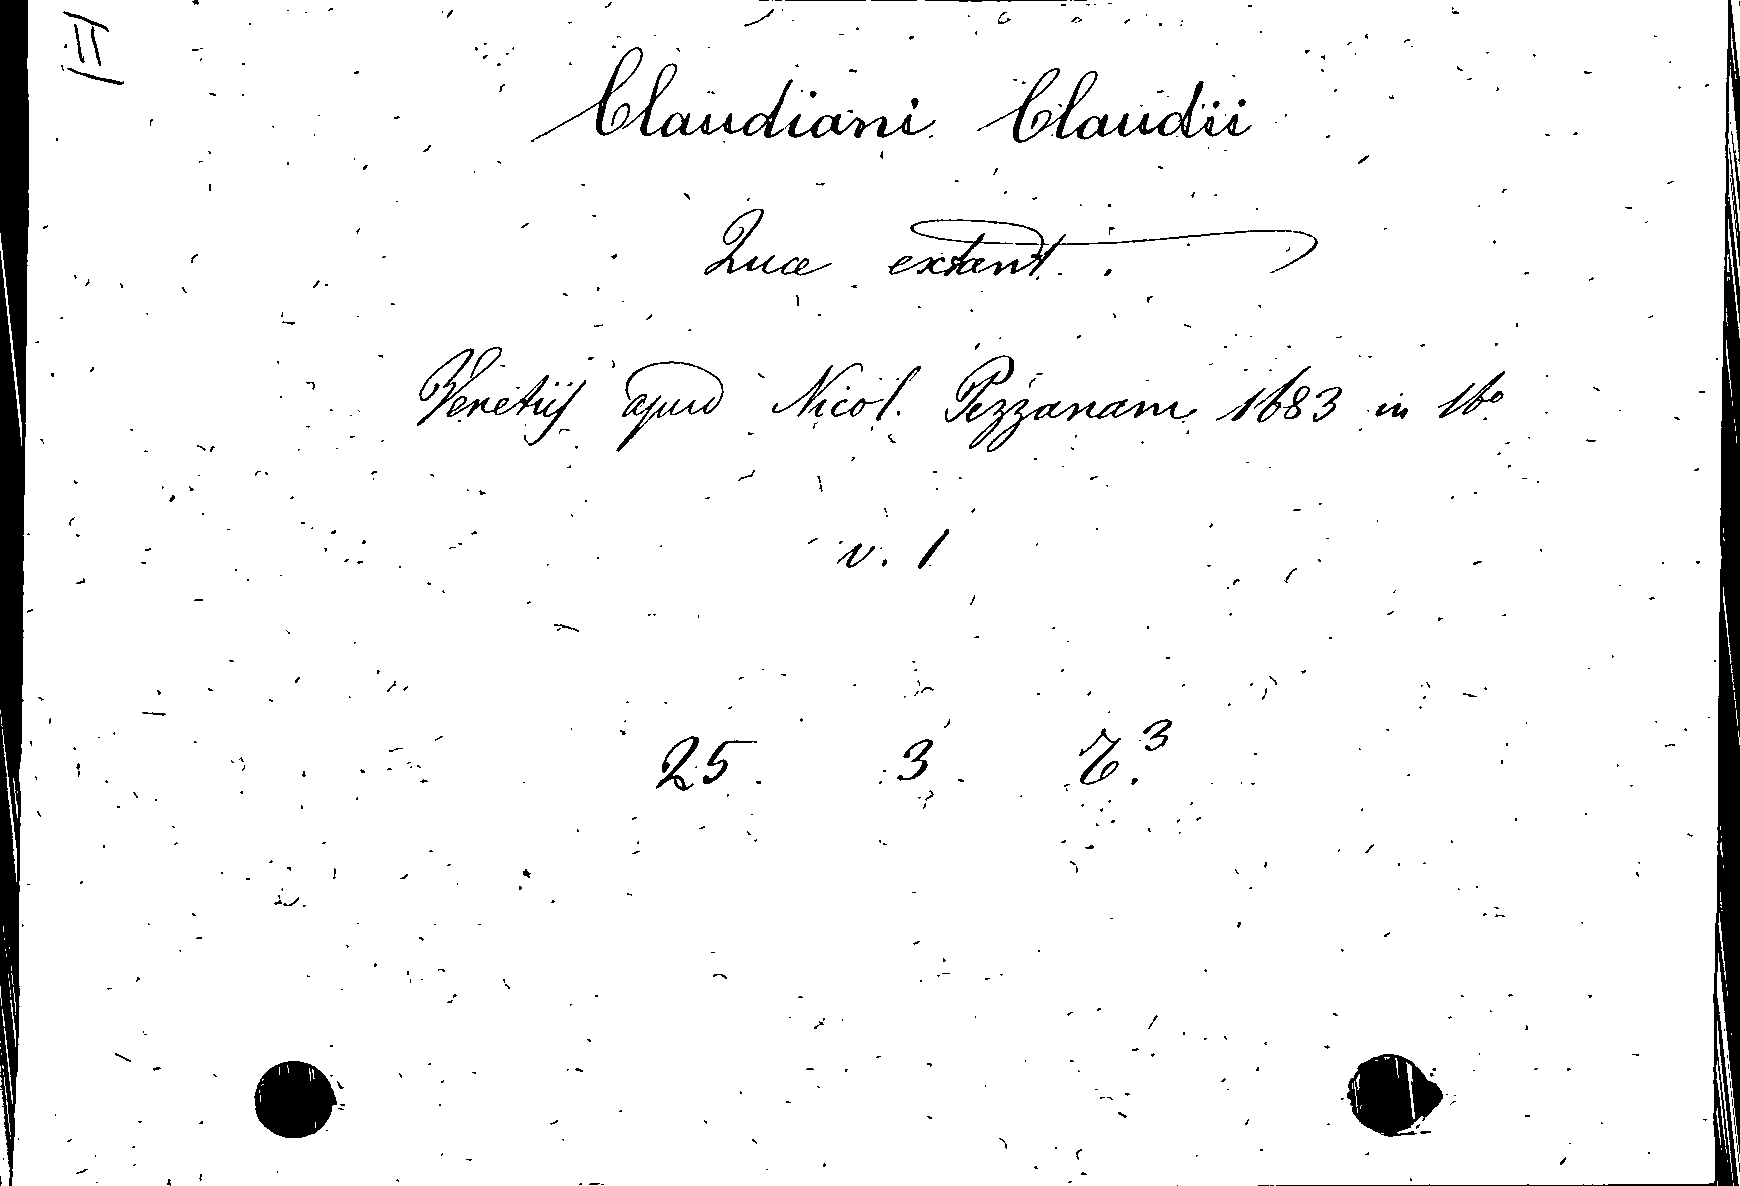 II
Claudiani Claudii
Quæ extant.
Venetiis apud Nicol. Pezzanam 1683 in 16º
v. 1
25. 3.